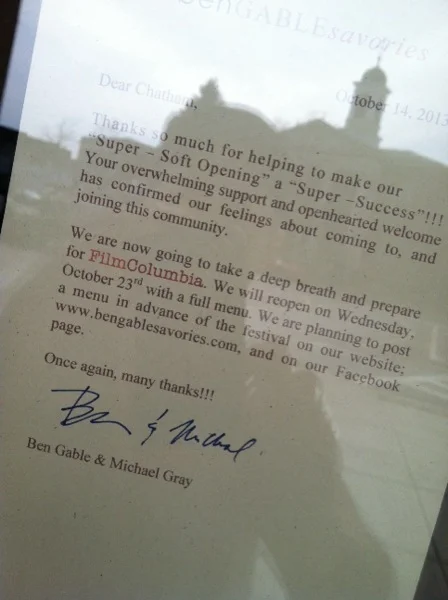 BenGABLEsavories
October 14, 2013
Dear Chatham,
Thanks so much for helping to make our
“Super – Soft Opening” a “Super –Success”!!!
Your overwhelming support and openhearted welcome
has confirmed our feelings about coming to, and
joining this community.
We are now going to take a deep breath and prepare
for FilmColumbia. We will reopen on Wednesday,
October 23rd with a full menu. We are planning to post
a menu in advance of the festival on our website;
www.bengablesavories.com, and on our Facebook
page.
Once again, many thanks!!!
Ben & Michael
Ben Gable & Michael Gray